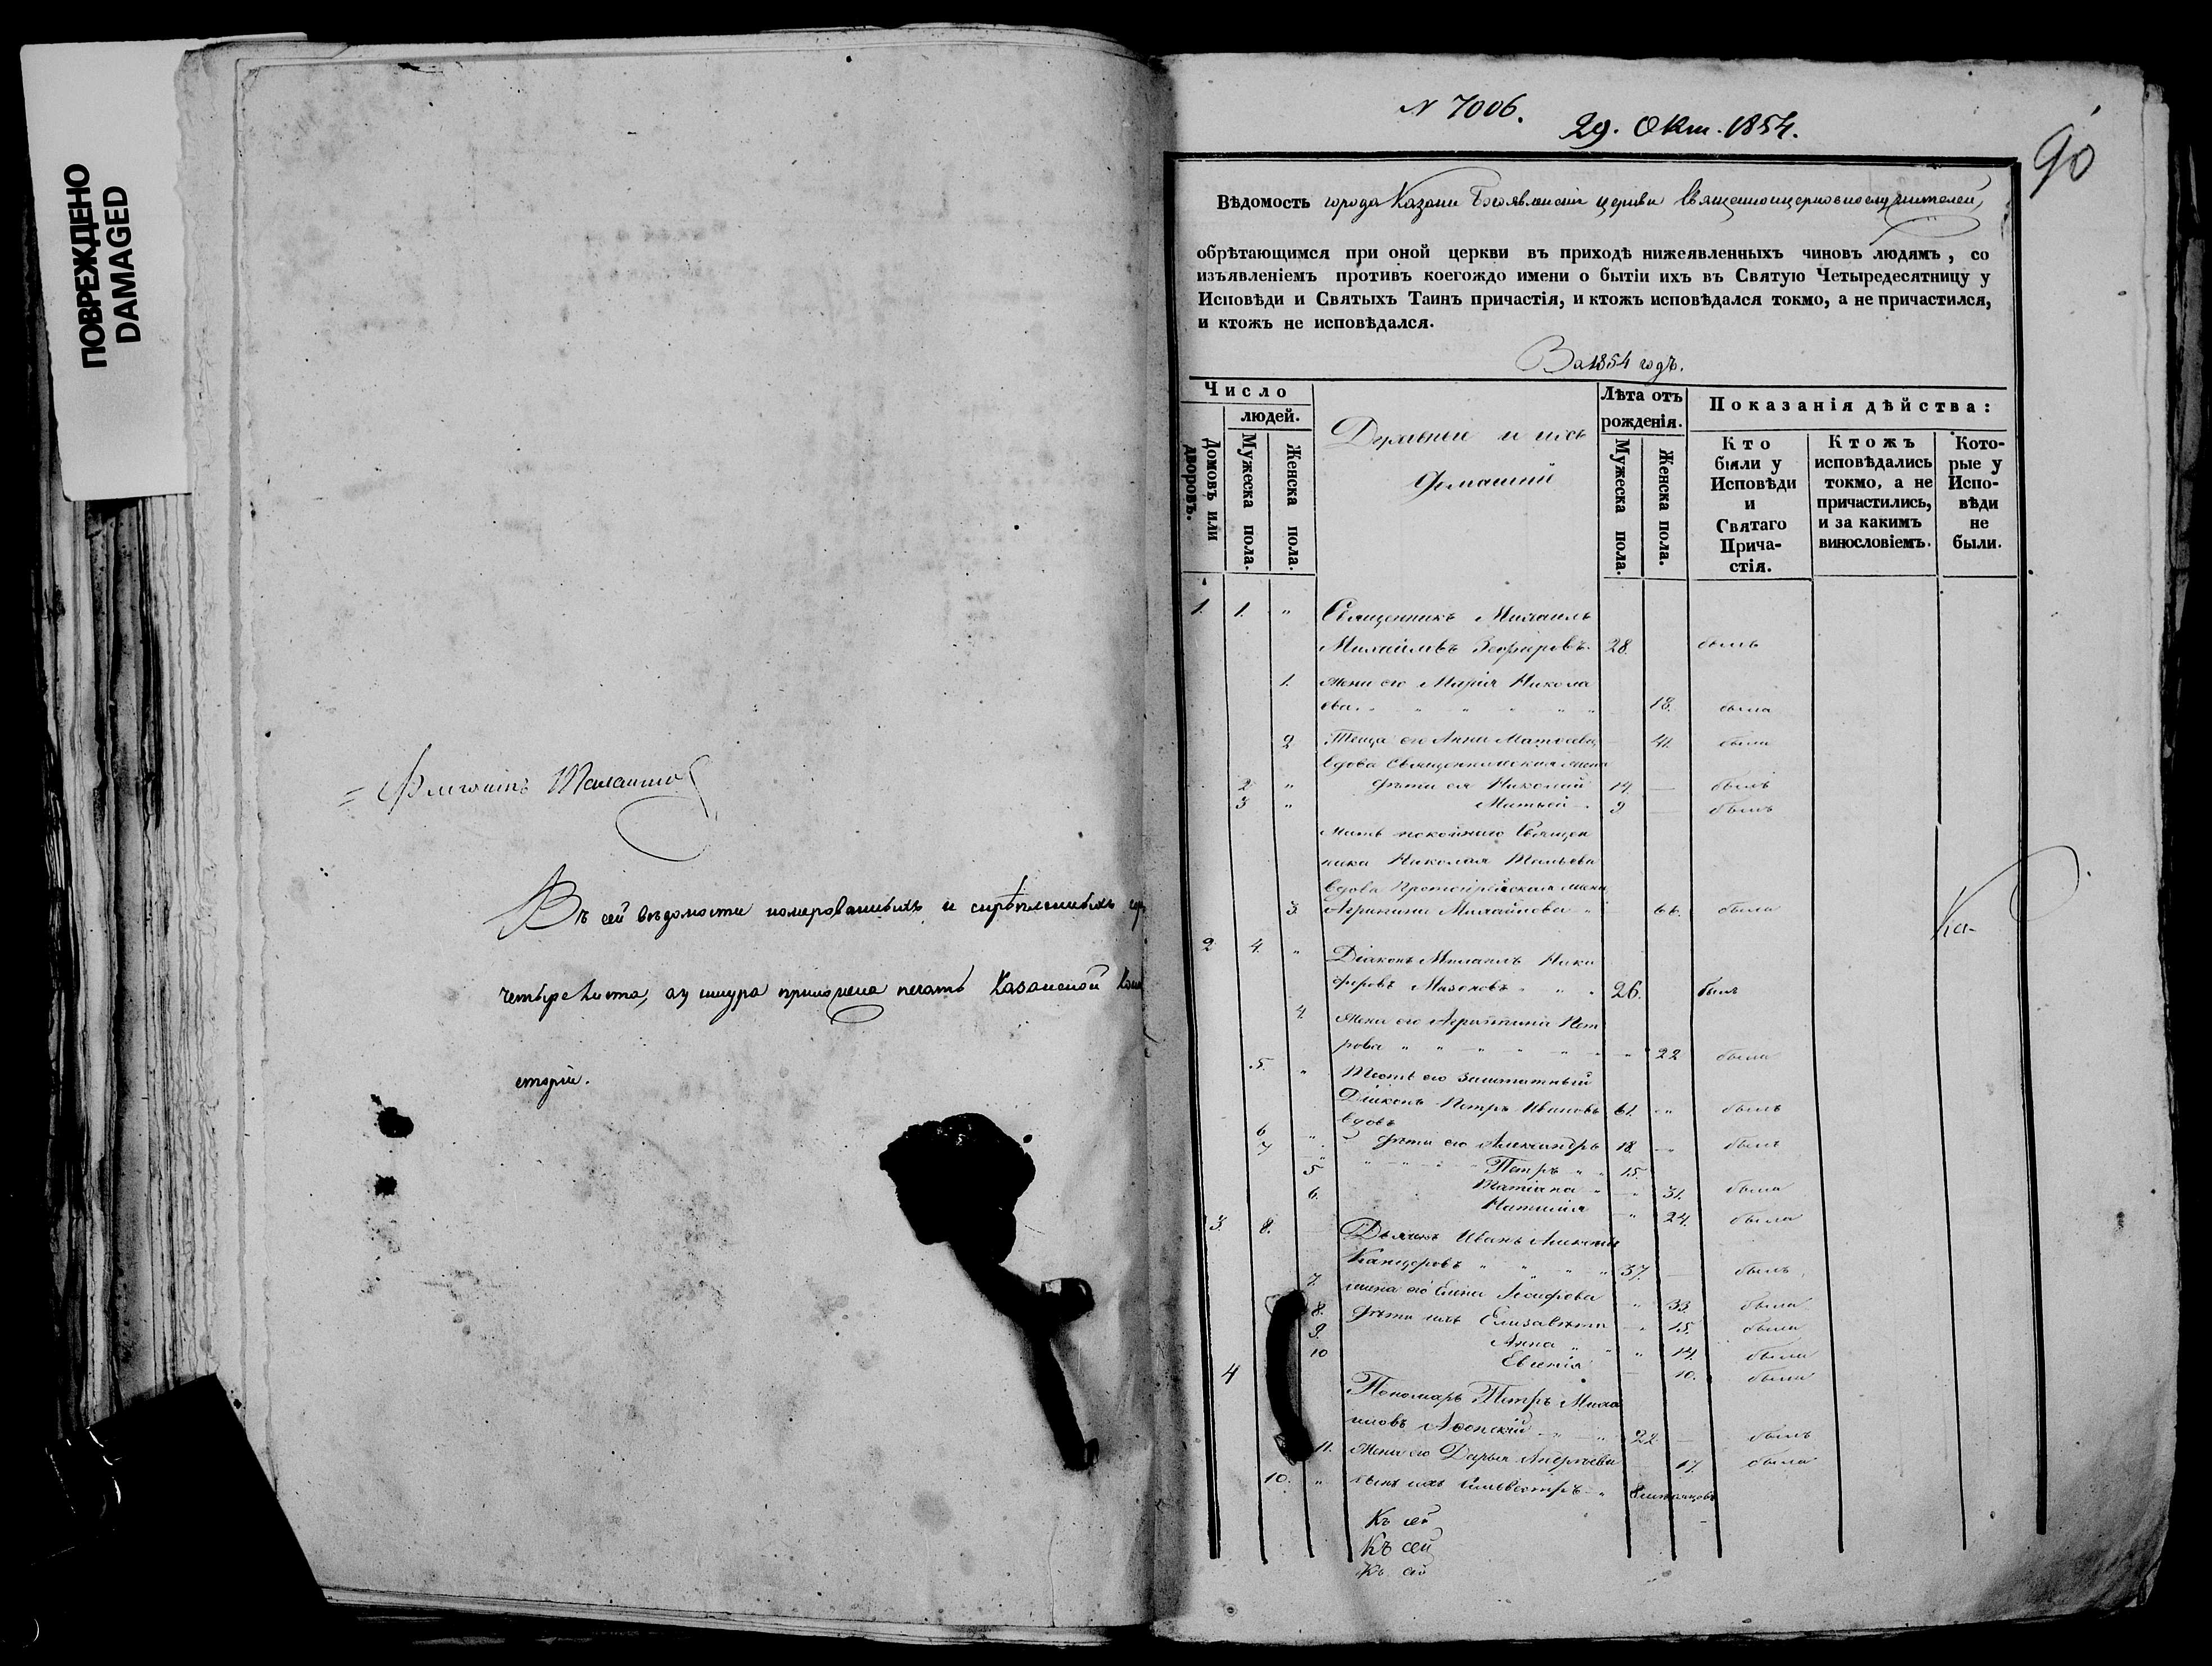 ПОВРЕЖДЕНО
DAMAGED
Въ сей вѣдомости номерованныхъ и скрѣпленныхъ
четыре листа, къ шнуру приложена печать Казанской
сторіи.
N 7006.
29. Окт. 1854.
90
Вѣдомость города Казани Богоявленской церкви Священноцерковнослужителей,
обрѣтающимся при оной церкви въ приходѣ нижеявленныхъ чиновъ людямъ, со
изъявленіемъ противъ коегождо имени о бытіи ихъ въ Святую Четыредесятницу у
Исповѣди и Святыхъ Таинъ причастія, и ктожъ исповѣдался токмо, а не причастился,
и ктожъ не исповѣдался.
За 1854 годъ.
Число
людей.
Домовъ или дворовъ.
Мужеска пола.
Женска пола.
Духовные и ихъ
домашніе
Лѣта отъ
рожденія.
Мужеска пола.
Женска пола.
Показанія дѣйства:
Кто
были у
Исповѣди
и
Святаго
Прича-
стія.
Ктожъ
исповѣдались
токмо, а не
причастились,
и за какимъ
винословіемъ.
Кото-
рые у
Испо-
вѣди
не
были.
1. 1. " Священникъ Михаилъ
Михайловъ Зефировъ. 28. былъ
1. Жена его Марія Никола
ева. " " " " " 18. была
2 Теща его Анна Матвеева 41. была
вдова Священническая жена
2 " Дѣти ея Николай 14. — былъ
3 " Матвей 9 былъ
Мать покойнаго Священ
ника Николая
вдова Протоіерейская жена
3. Агрипина Михайлова " 66. была
Ка-
2 4. " Діаконъ Михаилъ Ники
форовъ " " 26. былъ
4. Жена его Агрипина Пет
рова " " " " " " 22 была
5. " Тесть его заштатный
Діаконъ Петръ Ивановъ 61. " былъ
вдовъ
6 " Дѣти его Александръ 18. былъ
7 " Петръ " " 15.
5 Татіана " " 31. была
6. Наталія " 24. была
3. 8. Дьячекъ Иванъ
" " " " 37. былъ
7. жена его Елена " 33. была
8. Дѣти ихъ Елизавета " 15. была
9. Анна " " " 14. была
10 Евгенія 10. была
4 Пономарь Петръ Миха
иловъ " " 22 былъ
11. Жена его Дарья Андреева 17. была
10. " сынъ ихъ Сильвестръ " 8 мѣсяцовъ
Къ сей
Къ сей
Къ сей